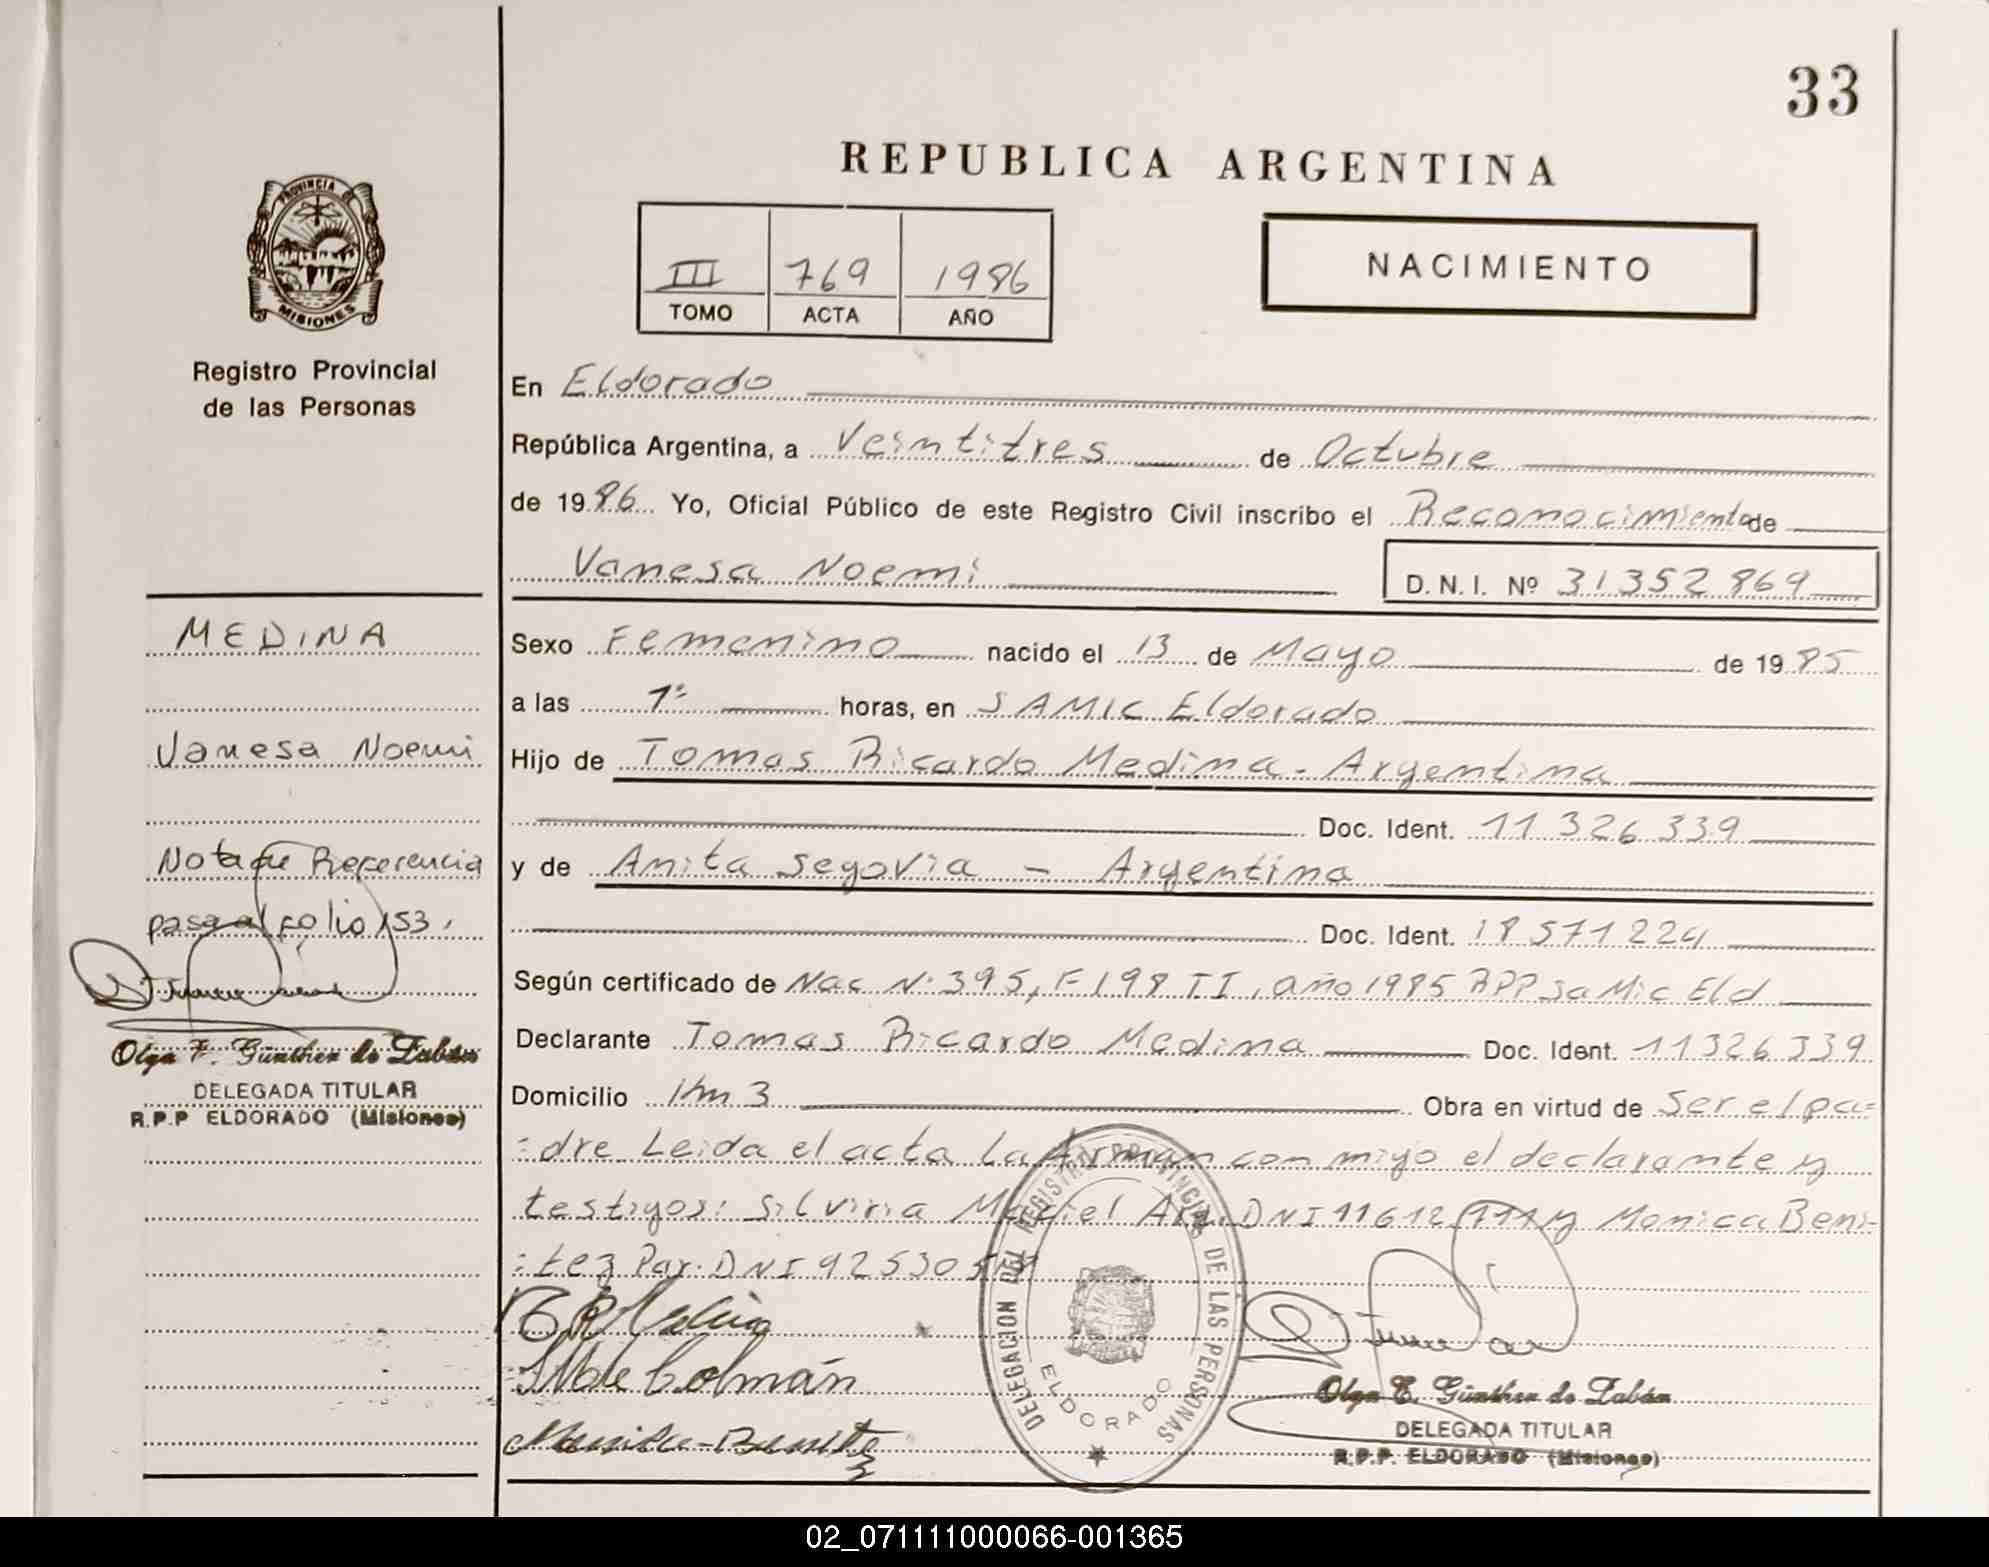 33
REPUBLICA ARGENTINA
PROVINCIA
MISIONES
Registro Provincial
de las Personas
III 769 1986
TOMO ACTA AÑO
NACIMIENTO
En Eldorado
República Argentina, a Veintitres de Octubre
de 1986 Yo, Oficial Público de este Registro Civil inscribo el Reconocimiento de
Vanesa Noemi D. N. I. Nº 31352869
MEDINA
Vanesa Noemi
Nota de Referencia
pasa al folio 153.
Olga E. Günther de Zabán
DELEGADA TITULAR
R.P.P ELDORADO (Misiones)
Sexo Femenino nacido el 13 de Mayo de 1985
a las 1ª horas, en SAMIC Eldorado
Hijo de Tomas Ricardo Medina - Argentina
Doc. Ident. 11 326 339
y de Anita Segovia - Argentina
Doc. Ident. 18 571 224
Según certificado de Nac N: 395, F 198 T I, año 1985 RPP SaMic Eld
Declarante Tomas Ricardo Medina Doc. Ident. 11326339
Domicilio Km 3 Obra en virtud de Ser el pa=
:dre Leida el acta La firman con migo el declarante y
testigos: Silviria Maciel Arg. DNI 11612 y Monica Beni-
:tez Par. DNI 925305
S M de Colmán
DELEGACION DEL REGISTRO PROVINCIAL DE LAS PERSONAS
ELDORADO
Olga E. Günther de Zabán
DELEGADA TITULAR
R.P.P. ELDORADO (Misiones)
02_071111000066-001365